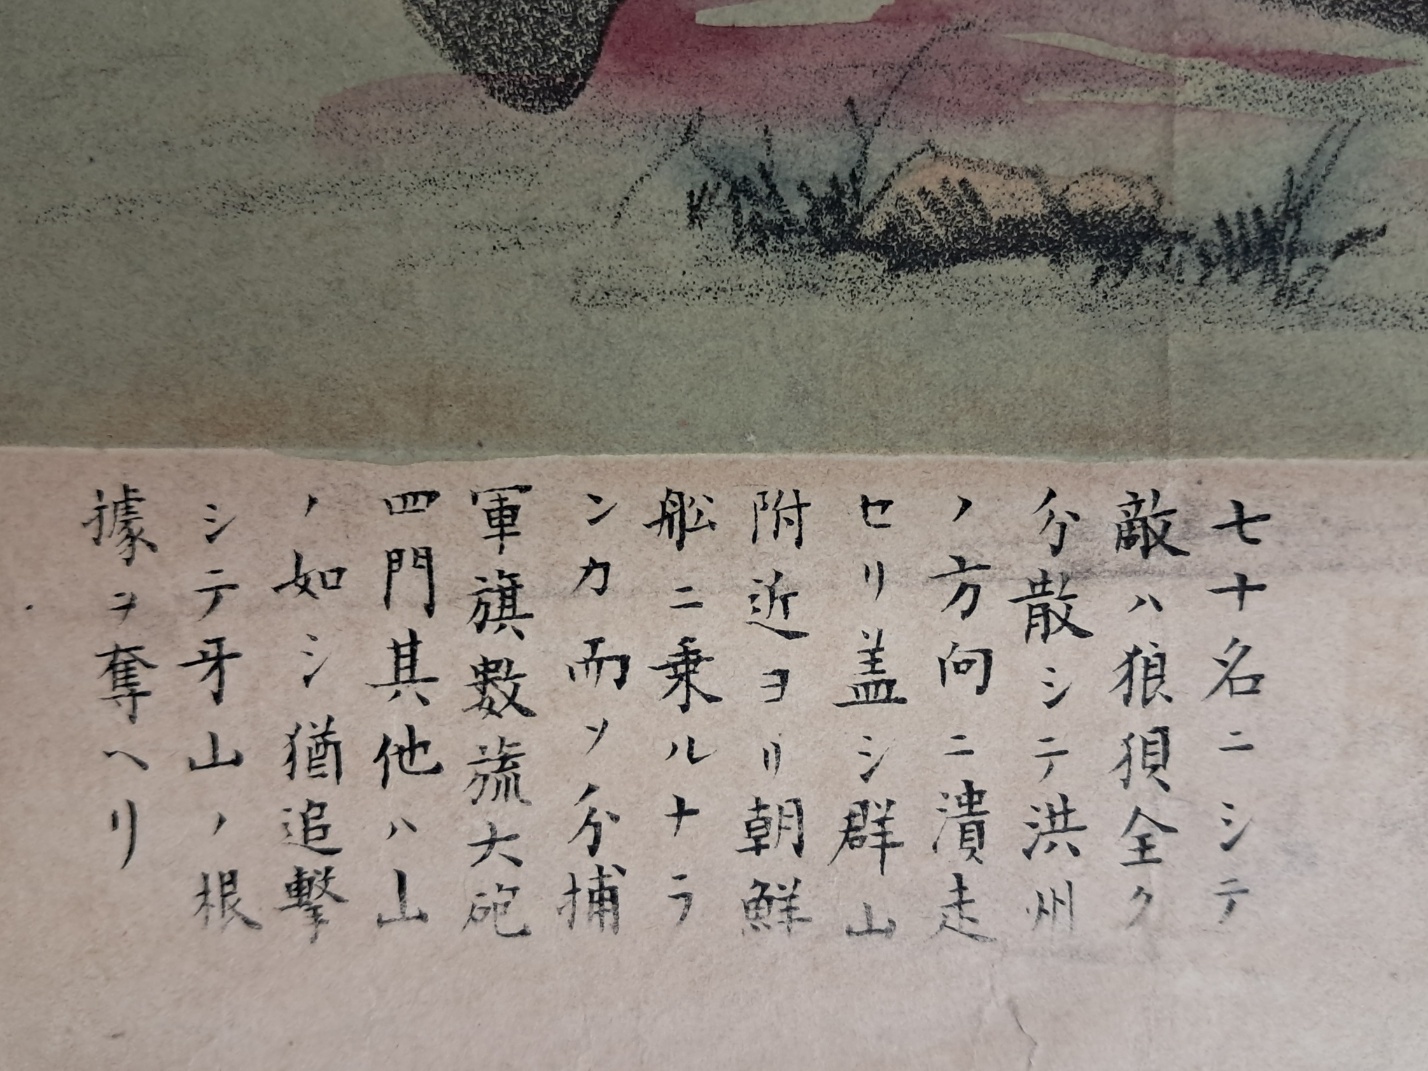 七十名ニシテ
敵ハ狼狽全ク
分散シテ洪州
ノ方向ニ潰走
セリ盖シ群山
附近ヨリ朝鮮
舩ニ乗ルナラ
ンカ而ソ分捕
軍旗數旒大砲
四門其他ハ山
ノ如シ猶追撃
シテ牙山ノ根
據ヲ奪ヘリ